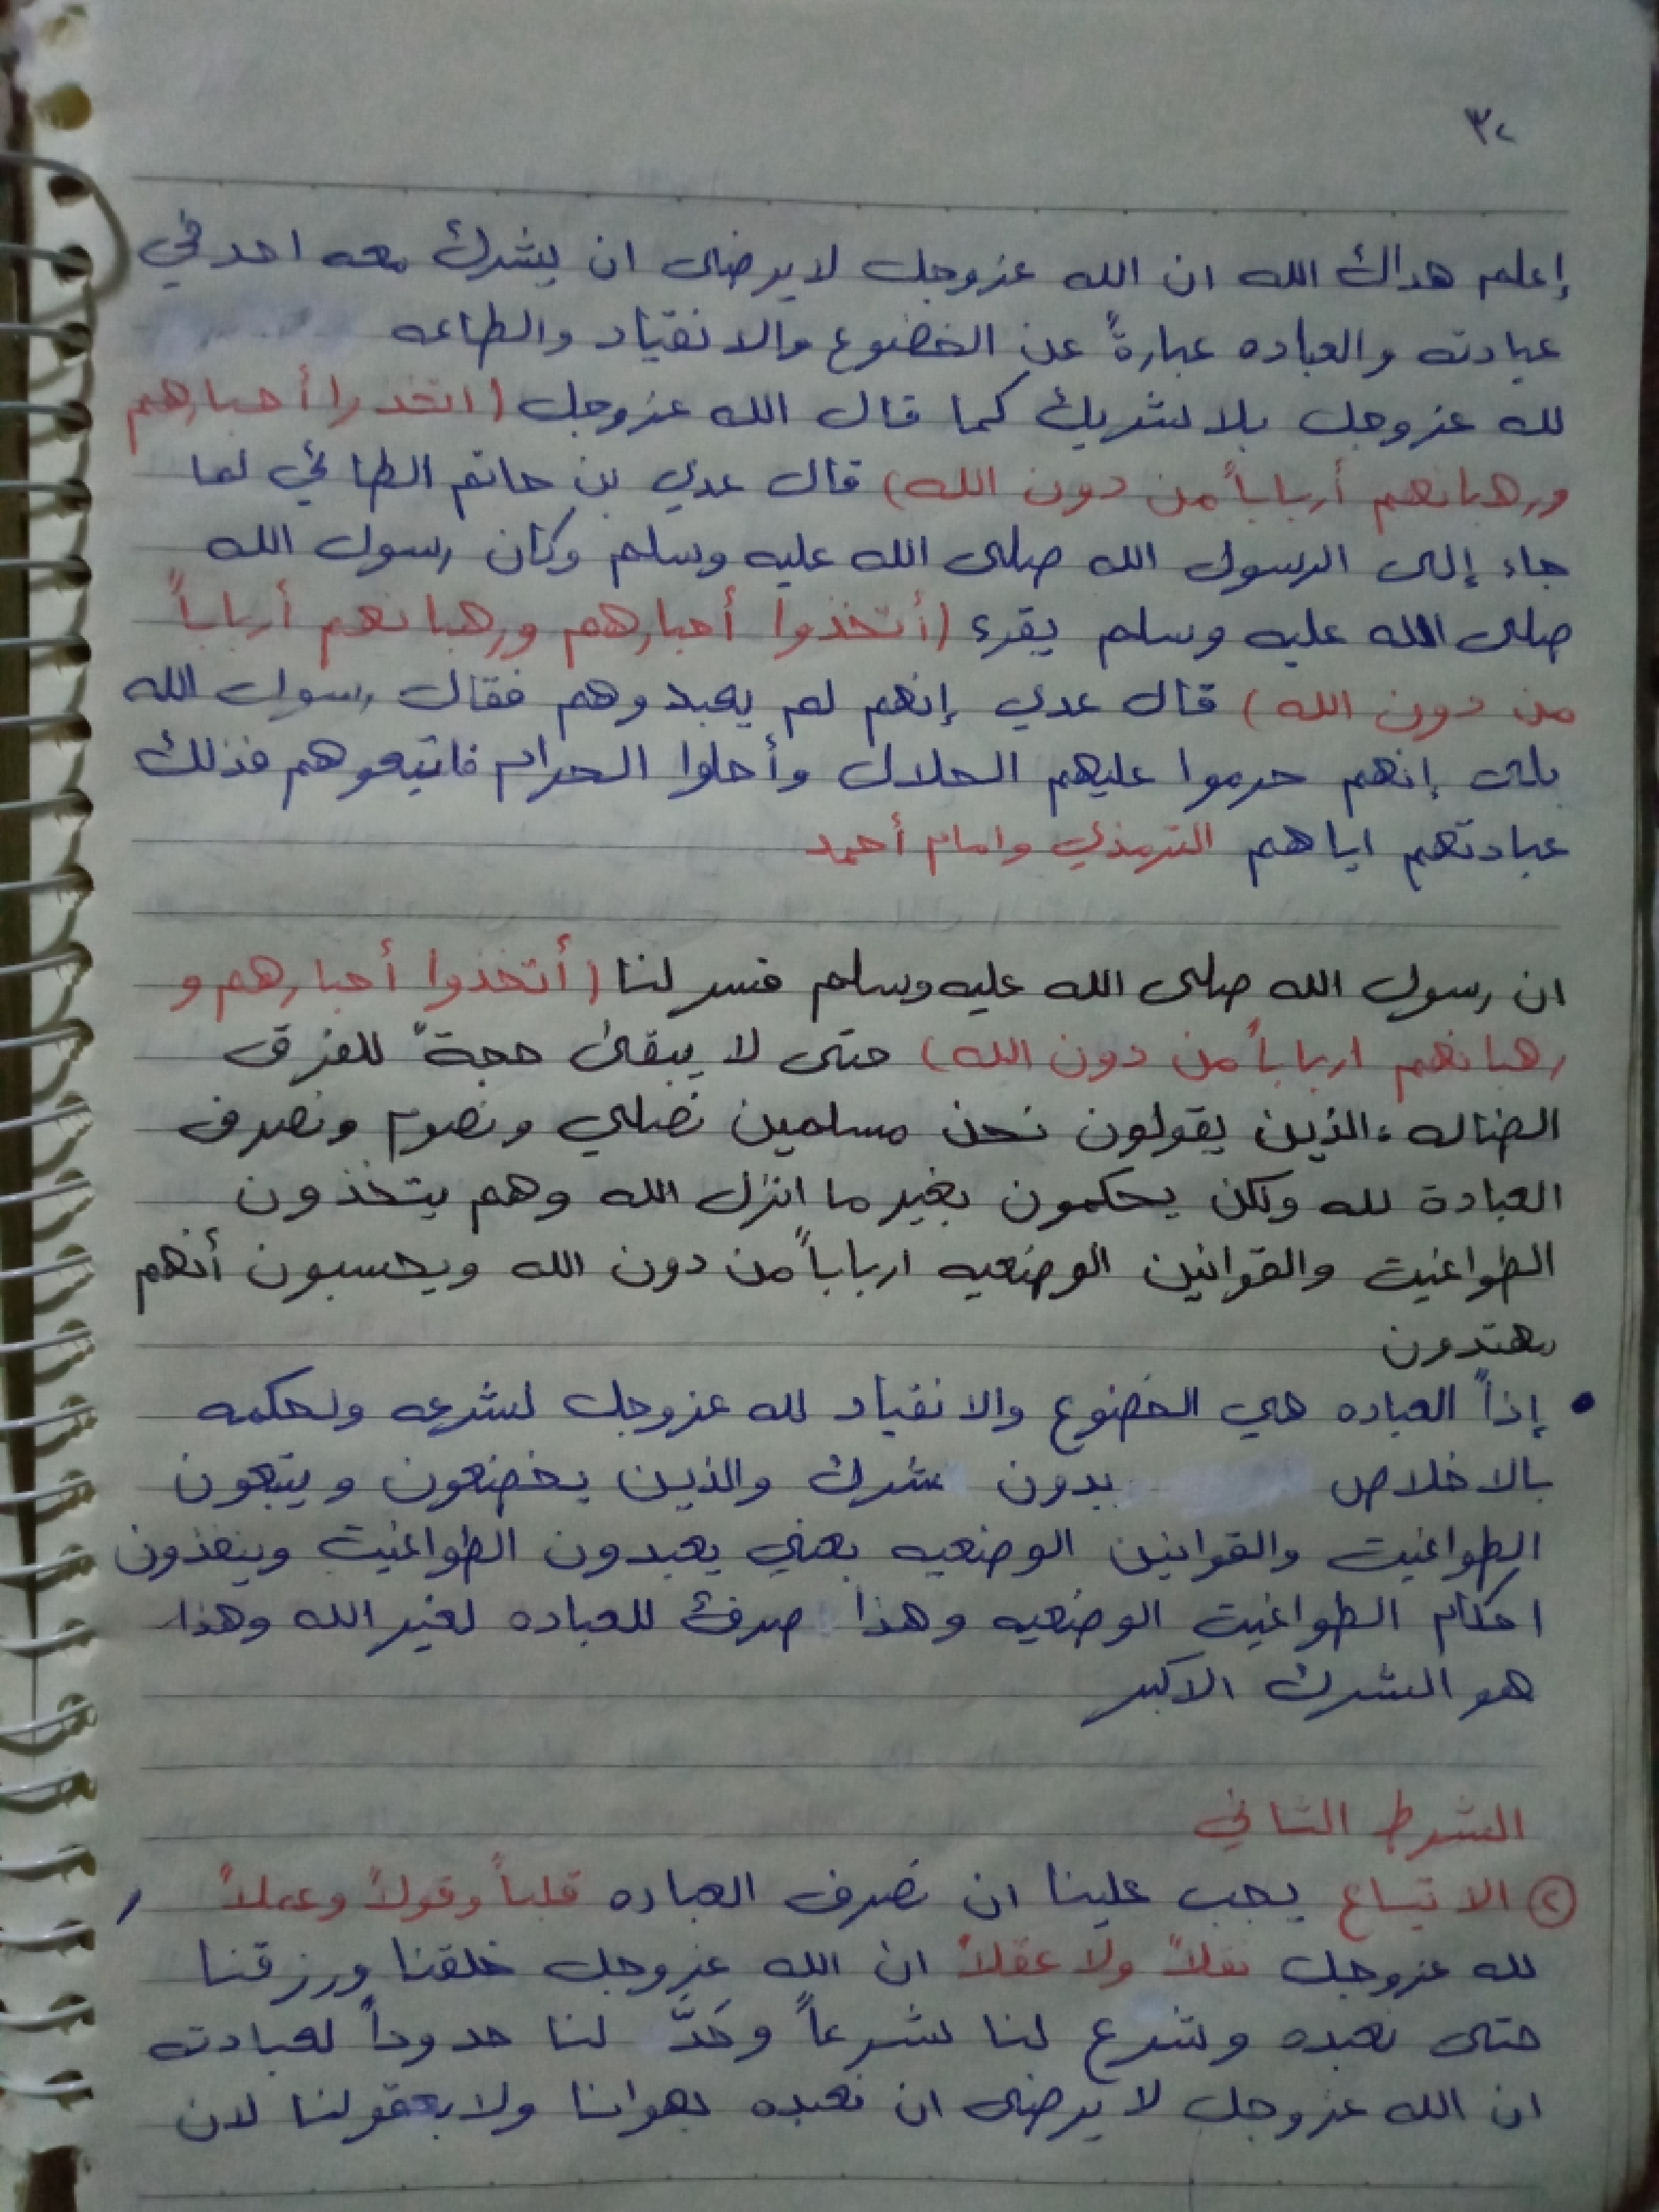 ٣٢
إعلم هداك الله ان الله عزوجل لا يرضى ان يشرك معه احد في
عبادته والعباده عبارةً عن الخضوع والانقياد والطاعه
لله عزوجل بلا شريك كما قال الله عزوجل (اتخذوا أحبارهم
ورهبانهم أرباباً من دون الله) قال عدي بن حاتم الطائي لما
جاء إلى الرسول الله صلى الله عليه وسلم وكان رسول الله
صلى الله عليه وسلم يقرء (أتخذوا أحبارهم ورهبانهم أرباباً
من دون الله) قال عدي إنهم لم يعبدوهم فقال رسول الله
بلى إنهم حرموا عليهم الحلال وأحلوا الحرام فاتبعوهم فذلك
عبادتهم اياهم الترمذي وامام أحمد
ان رسول الله صلى الله عليه وسلم فسر لنا (أتخذوا أحبارهم و
رهبانهم ارباباً من دون الله) حتى لا يبقى حجةً للفرق
الضاله، الذين يقولون نحن مسلمين نصلي ونصوم ونصرف
العبادة لله ولكن يحكمون بغير ما انزل الله وهم يتخذون
الطواغيت والقوانين الوضعيه ارباباً من دون الله ويحسبون أنهم
مهتدون
• إذاً العباده هي الخضوع والانقياد لله عزوجل لشرعه ولحكمه
بالاخلاص بدون شرك والذين يخضعون ويتبعون
الطواغيت والقوانين الوضعيه يعني يعبدون الطواغيت وينفذون
احكام الطواغيت الوضعيه وهذا صرف للعباده لغير الله وهذا
هو الشرك الاكبر
الشرط الثاني
② الاتباع يجب علينا ان نصرف العباده قلباً وقولاً وعملاً
لله عزوجل نقلاً ولا عقلاً ان الله عزوجل خلقنا ورزقنا
حتى نعبده وشرع لنا شرعاً وحَدَّ لنا حدوداً لعبادته
ان الله عزوجل لا يرضى ان نعبده بهوانا ولا بعقولنا لان